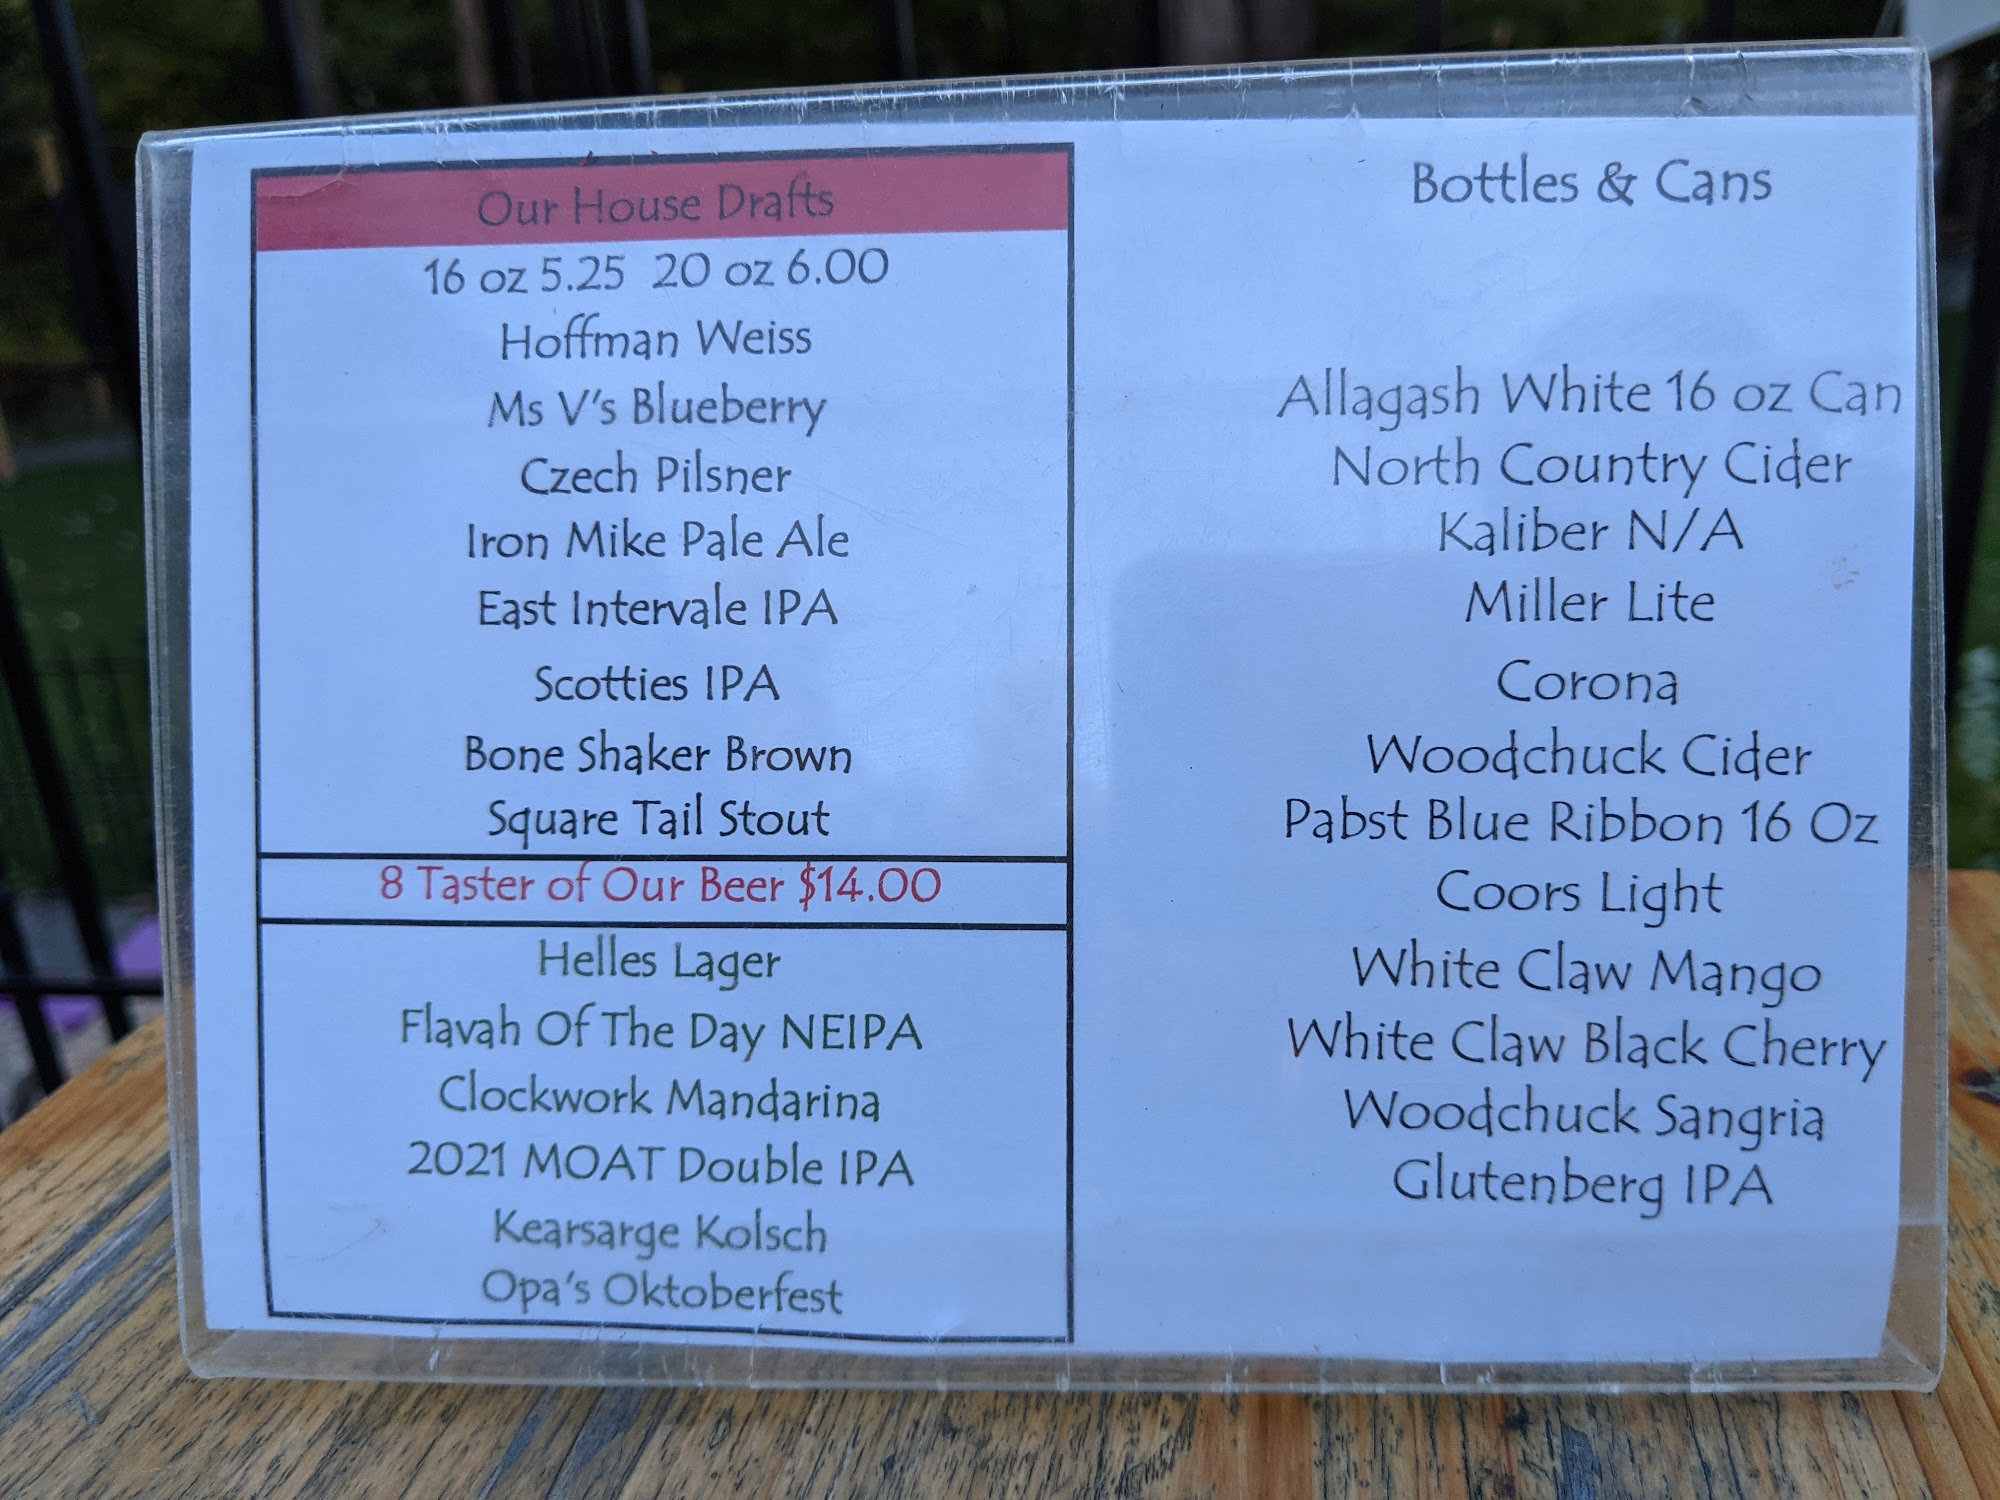 Our House Drafts
16 oz 5.25 20 oz 6.00
Hoffman Weiss
Ms V's Blueberry
Czech Pilsner
Iron Mike Pale Ale
East Intervale IPA
Scotties IPA
Bone Shaker Brown
Square Tail Stout
8 Taster of Our Beer $14.00
Helles Lager
Flavah Of The Day NEIPA
Clockwork Mandarina
2021 MOAT Double IPA
Kearsarge Kolsch
Opa's Oktoberfest
Bottles & Cans
Allagash White 16 oz Can
North Country Cider
Kaliber N/A
Miller Lite
Corona
Woodchuck Cider
Pabst Blue Ribbon 16 Oz
Coors Light
White Claw Mango
White Claw Black Cherry
Woodchuck Sangria
Glutenberg IPA